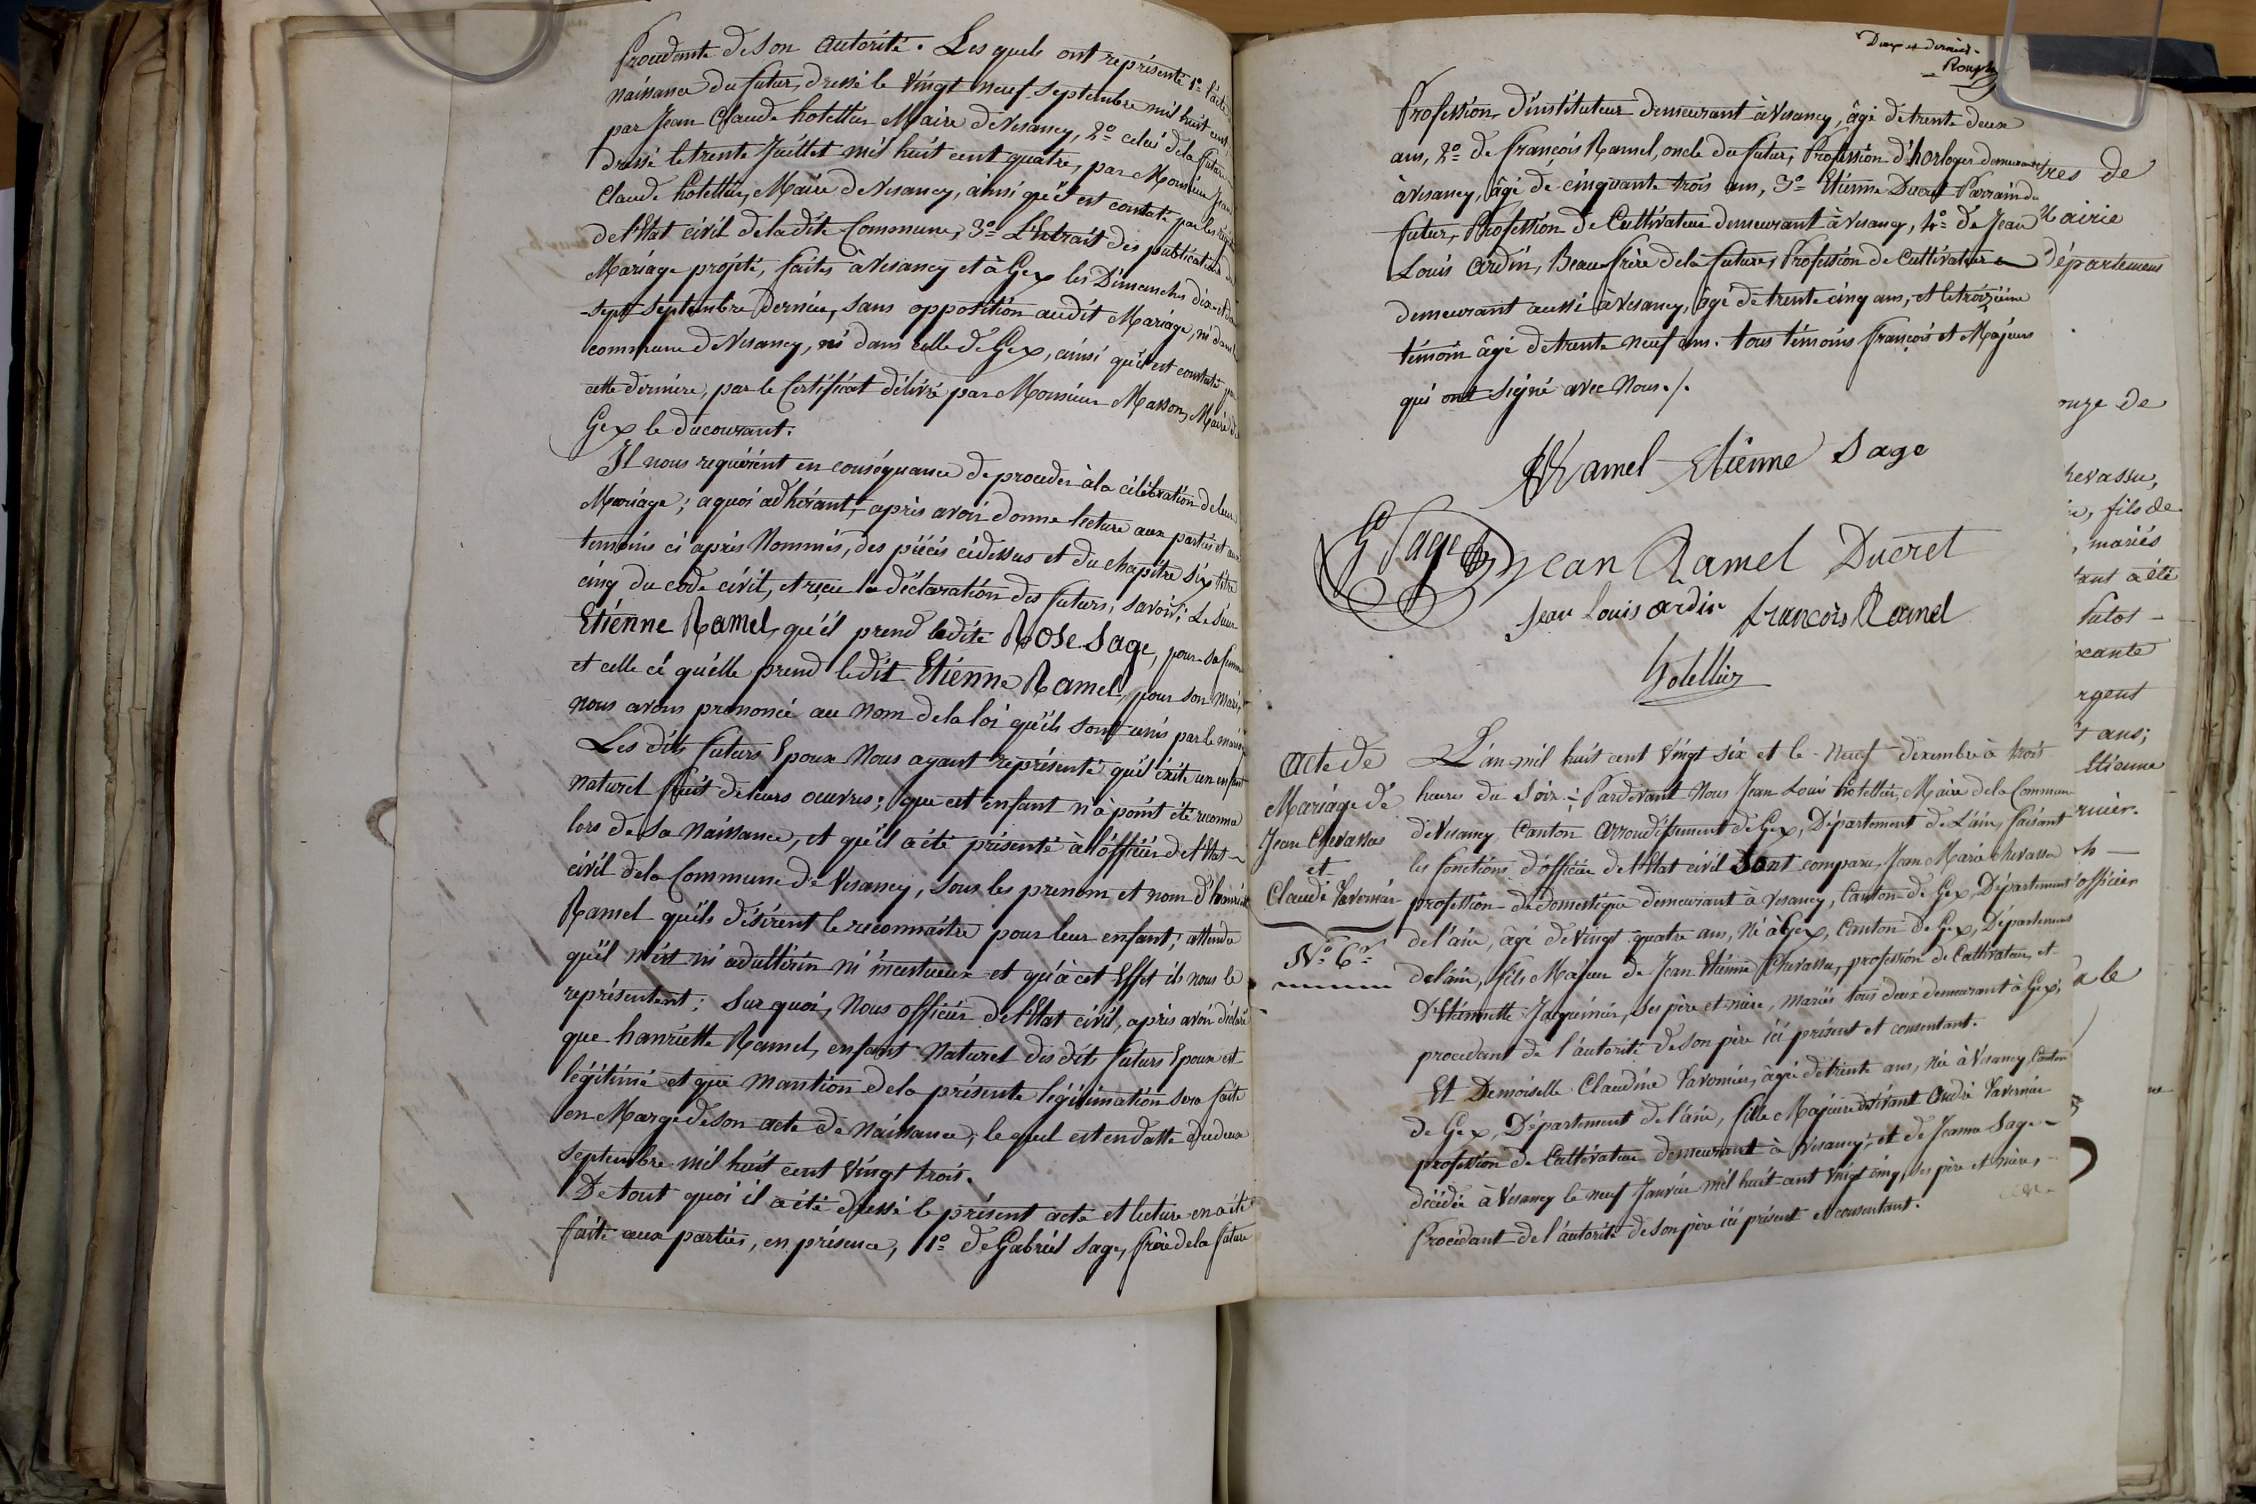 Procedante de son autorité. Les quels ont représenté 1º l'acte
naissance du futur, dressé le vingt neuf Septembre mil huit cent
par Jean Claude hotellier Maire de Vesancy, 2º celui de la future
dressé le trente Juillet mil huit cent quatre, par Monsieur Jean
Claude hotellier, Maire de Vesancy, ainsi qu'il est constaté par les
de l'Etat civil de la dite Commune, 3º L'Extrait des publications de
Mariage projeté, faites à Vesancy et à Gex les Dimanches dix et dix
-sept Septembre dernier, sans opposition audit Mariage, ni dans la
commune de Vesancy, ni dans celle de Gex, ainsi qu'il est constaté pour
cette dernière, par le Certificat délivré par Monsieur Masson, Maire de
Gex le du courant.
Il nous requièrent en conséquance de proceder à la célébration de leur
Mariage; a quoi adhérant, après avoir donné lecture aux parties et aux
temoins ci après Nommés, des pièces ci dessus et du chapitre six titre
cinq du code civil, et reçu la déclaration des futurs, savoir; Le Sieur
Etiénne Ramel, qu'il prend ladite Rose Sage, pour sa femme
et celle ci qu'elle prend ledit Etiénne Ramel, pour son mari,
nous avons prononcé au nom de la loi qu'ils sont unis par le mariage
Les dits futurs Epoux Nous ayant représenté qu'il éxite un enfant
naturel fruit de leurs oeuvres; que cet enfant n'à point été reconnu
lors de sa Naissance, et qu'il a été présenté à l'officier de l'Etat
civil de la Commune de Vesancy, sous les prenom et nom d'hanriette
Ramel qu'ils désirent le reconnaitre pour leur enfant, attendu
qu'il n'est ni adultérin ni incestueux et qu'à cet Effet ils nous le
représentent: Sur quoi, Nous officier de l'Etat civil, après avoir déclaré
que hanriette Ramel, enfant Naturel des dits futurs Epoux est
légitimé et que mantion de la présente légitimation sera faite
en Marge de son acte de Naissance; le quel est en datte du deux
Septembre mil huit cent vingt trois.
De tout quoi il a été dressé le présent acte et lecture en a été
faite aux parties, en présence, 1º de Gabriel Sage, frère de la future
Deux et dernier.
Profession d'instituteur demeurant à Vesancy, âgé de trente deux
ans, 2º de françois Ramel, oncle du futur, Profession d'horloger demeurant
à Vesancy, âgé de cinquante trois ans, 3º Etienne Ducret Parrain du
futur, Profession de Cultivateur demeurant à Vesancy, 4º de Jean
Louis Ardin, Beau frère de la future, Profession de Cultivateur
demeurant aussi à Vesancy, âgé de trente cinq ans, et le troizième
témoin âgé de trente neuf ans. tous témoins françois et Majeurs
qui ont signé avec Nous./.
Ramel Etiénne Sage
G Sage Jean Ramel Ducret
Jean Louis ardin francois Ramel
hotellier
Acte de
Mariage de
Jean Chevassu
et
Claudé Tavernier
Nº 6
L'an mil huit cent vingt six et le Neuf décembre à trois
heures du Soir; Pardevant Nous Jean Louis hotellier, Maire de la Commune
de Vesancy Canton arrondissement de Gex, Département de L'ain, faisant
les fonctions d'officier de l'Etat civil Sont comparu, Jean Marie chevassu
profession de domestique demeurant à Vesancy, Canton de Gex, Département
de l'ain, âgé de vingt quatre ans, Né à Gex, Canton de Gex, Département
de l'ain, fils Majeur de Jean Etiénne Chevassu, profession de Cultivateur, et
D'Etiennette Jaquinier, ses père et mère, mariés tous deux demeurant à Gex,
procedant de l'autorité de son père ici présent et consentant.
Et Demoiselle Claudine Tavernier, âgée de trente ans, Née à Vesancy Canton
de Gex, Département de l'ain, fille Majeure de vivant André Tavernier
profession de Cultivateur demeurant à Vesancy, et de Jeanne Sage
décédée à Vesancy le neuf Janvier mil huit cent vingt cinq, ses père et mère,
Procédant de l'autorité de son père ici présent et consentant.
tres de
Mairie
département
onze de
hevassu,
fils de
mariés
tant a été
futot
ixante
rgent
ans;
Etienne
rnier.
officier
a le